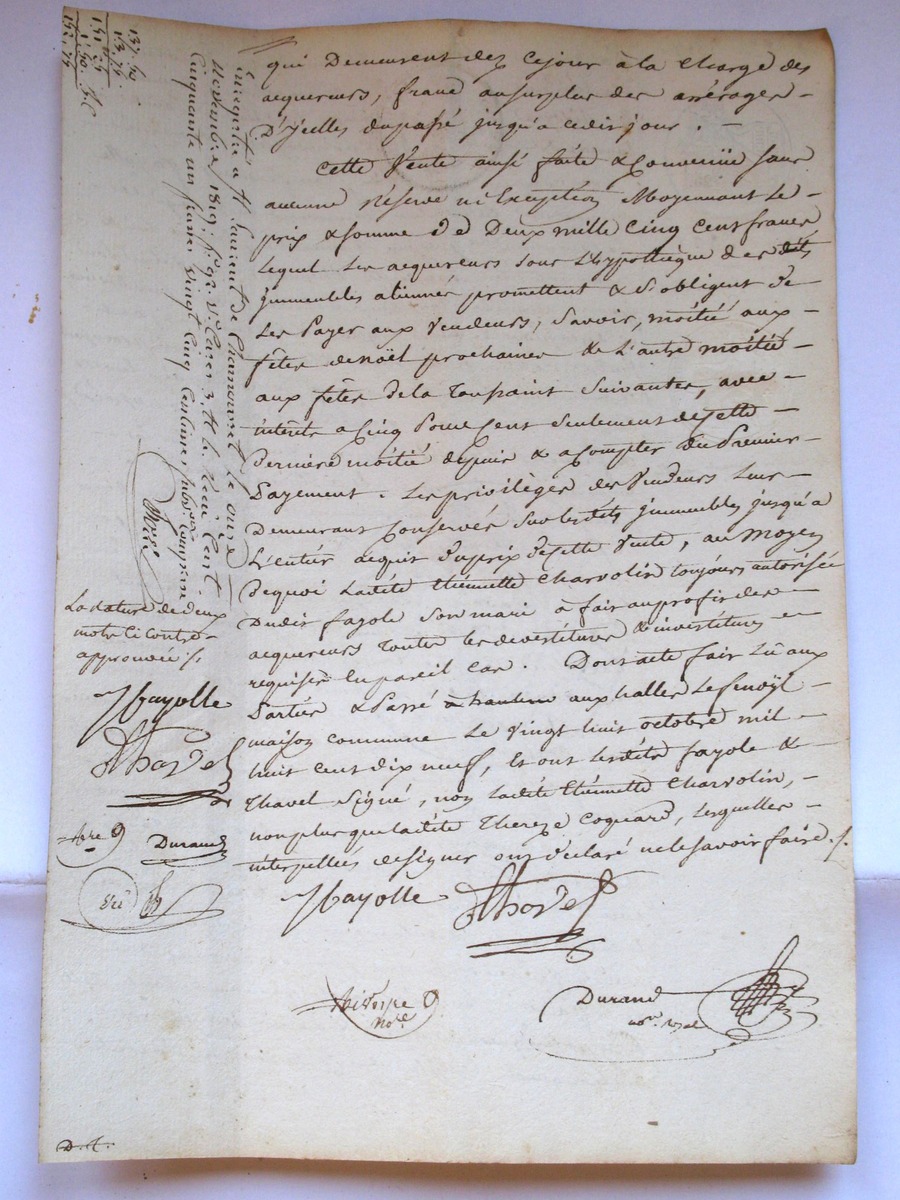 qui Demeurent dez cejour à la charge des
acquereurs, franc au surplus des arrérages
D'ycelles du passé jusqu'a cedit jour.
Cette Vente ainsi faite & Convenüe sans
aucune Réserve ni Exception Moyennant Le
prix & somme de Deux mille Cinq cent francs
Lequel Les acquereurs sous L'hypothèque des dits
jmmeubles aliennés promettent & s'obligent de
Les Payer aux Vendeurs, Savoir, moitié aux
fêtes de noël prochaines & L'autre moitié
aux fêtes de la Toussaint Suivantes, avec
interets a Cinq Pour Cent Seulement de cette
Derniere moitié depuis & a Compter du Premier
Payement. Les privilèges des Vendeurs Leur
Demeurant Conservés Sur lesdits jmmeubles jusqu'à
L'entier acquit du prix de cette Vente, au moyen
Dequoi Ladite Etiennette Charvolin toujours autorisée
Dudit fayole Son mari à fait au profit des
acquereurs Toutes les devestitures & investitures
requises En pareil Cas. Dont acte fait Lû aux
Parties & Passé à aux halles Lefenoÿl
maison commune Le Vingt huit octobre mil
huit Cent dix neuf, Et ont Lesdits fayole &
Thavel Signé, non Ladite Etiennette Charvolin,
non plus que Ladite Thereze Coquard, Lesquelles
interpellées de signer ont déclaré ne le savoir faire ./.
Jfayolle Thavel
Durand
Nore.
137. 50
13. 75
151. 25
1. 50
152. 75
Enregistré à St. Laurent de Chamousset le onze
Novembre 1819. fo. 92. Vo. Cases 3. 4. Reçu Cent
Cinquante un francs Vingt Cinq Centimes Subvon. Comprise
La rature de deux
mots Ci contre
approuvée ./.
Jfayolle
Thavel
Durand
D. T.